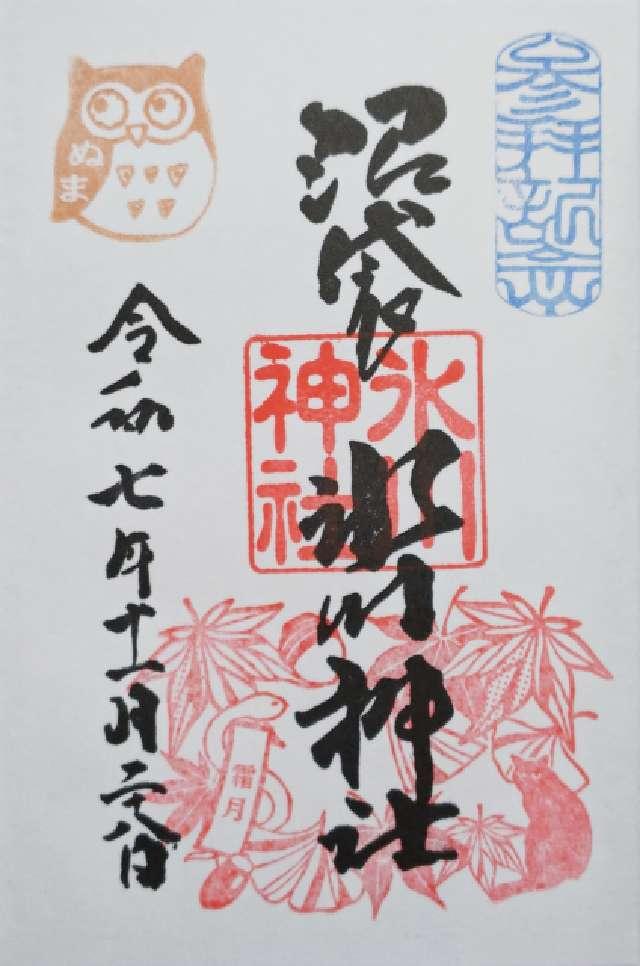 参拝記念
沼袋
氷川神社
氷川
神社
令和七年十一月二十八日
ぬま
霜月